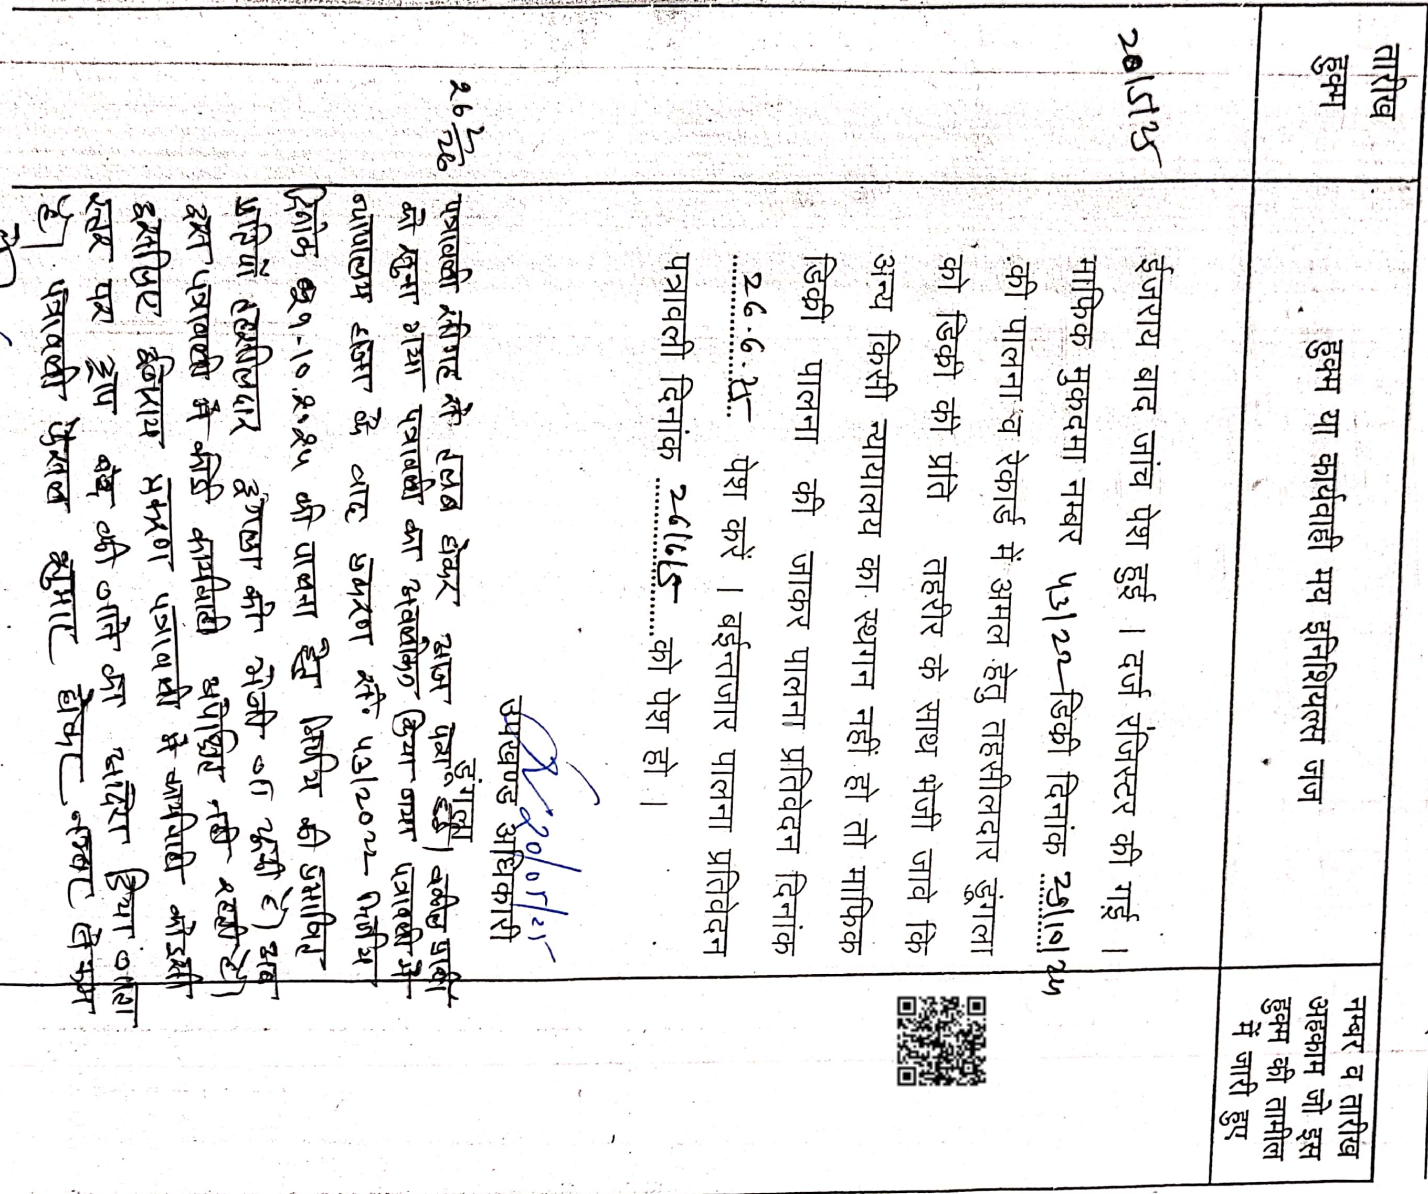 तारीख
हुक्म
हुक्म या कार्यवाही मय इनिशियल्स जज
नम्बर व तारीख
अहकाम जो इस
हुक्म की तामील
में जारी हुए
20/5/25
ईजराय बाद जांच पेश हुई । दर्ज रजिस्टर की गई ।
माफिक मुकदमा नम्बर 43/22 डिक्री दिनांक 29/10/24
की पालना व रेकार्ड में अमल हेतु तहसीलदार डूंगला
को डिक्री की प्रति तहरीर के साथ भेजी जावे कि
अन्य किसी न्यायालय का स्थगन नहीं हो तो माफिक
डिक्री पालना की जाकर पालना प्रतिवेदन दिनांक
26.6.25 पेश करें । वईन्तजार पालना प्रतिवेदन
पत्रावली दिनांक 26/6/25 को पेश हो ।
20/05/25
उपखण्ड अधिकारी
डूंगला
26
पत्रावली सीगाह से तलब होकर आज पेश हुई। वकील प्रार्थी
को सुना गया पत्रावली का अवलोकन किया गया पत्रावली में
न्यायालय हाजा के वाद प्रकरण सं 43/2022 निर्णय
दिनांक 29.10.2024 की पालना हेतु निर्णय की प्रमाणित
प्रतियें तहसीलदार डूंगला को भेजी जा चुकी है। अब
इस पत्रावली में कोई कार्यवाही अपेक्षित नहीं रहती है।
इसलिए इजराय प्रकरण पत्रावली में कार्यवाही को इसी
स्तर पर ड्राप बन्द की जाने का आदेश दिया जाता
है। पत्रावली फैसल शुमार होकर नम्बर से कम
हो